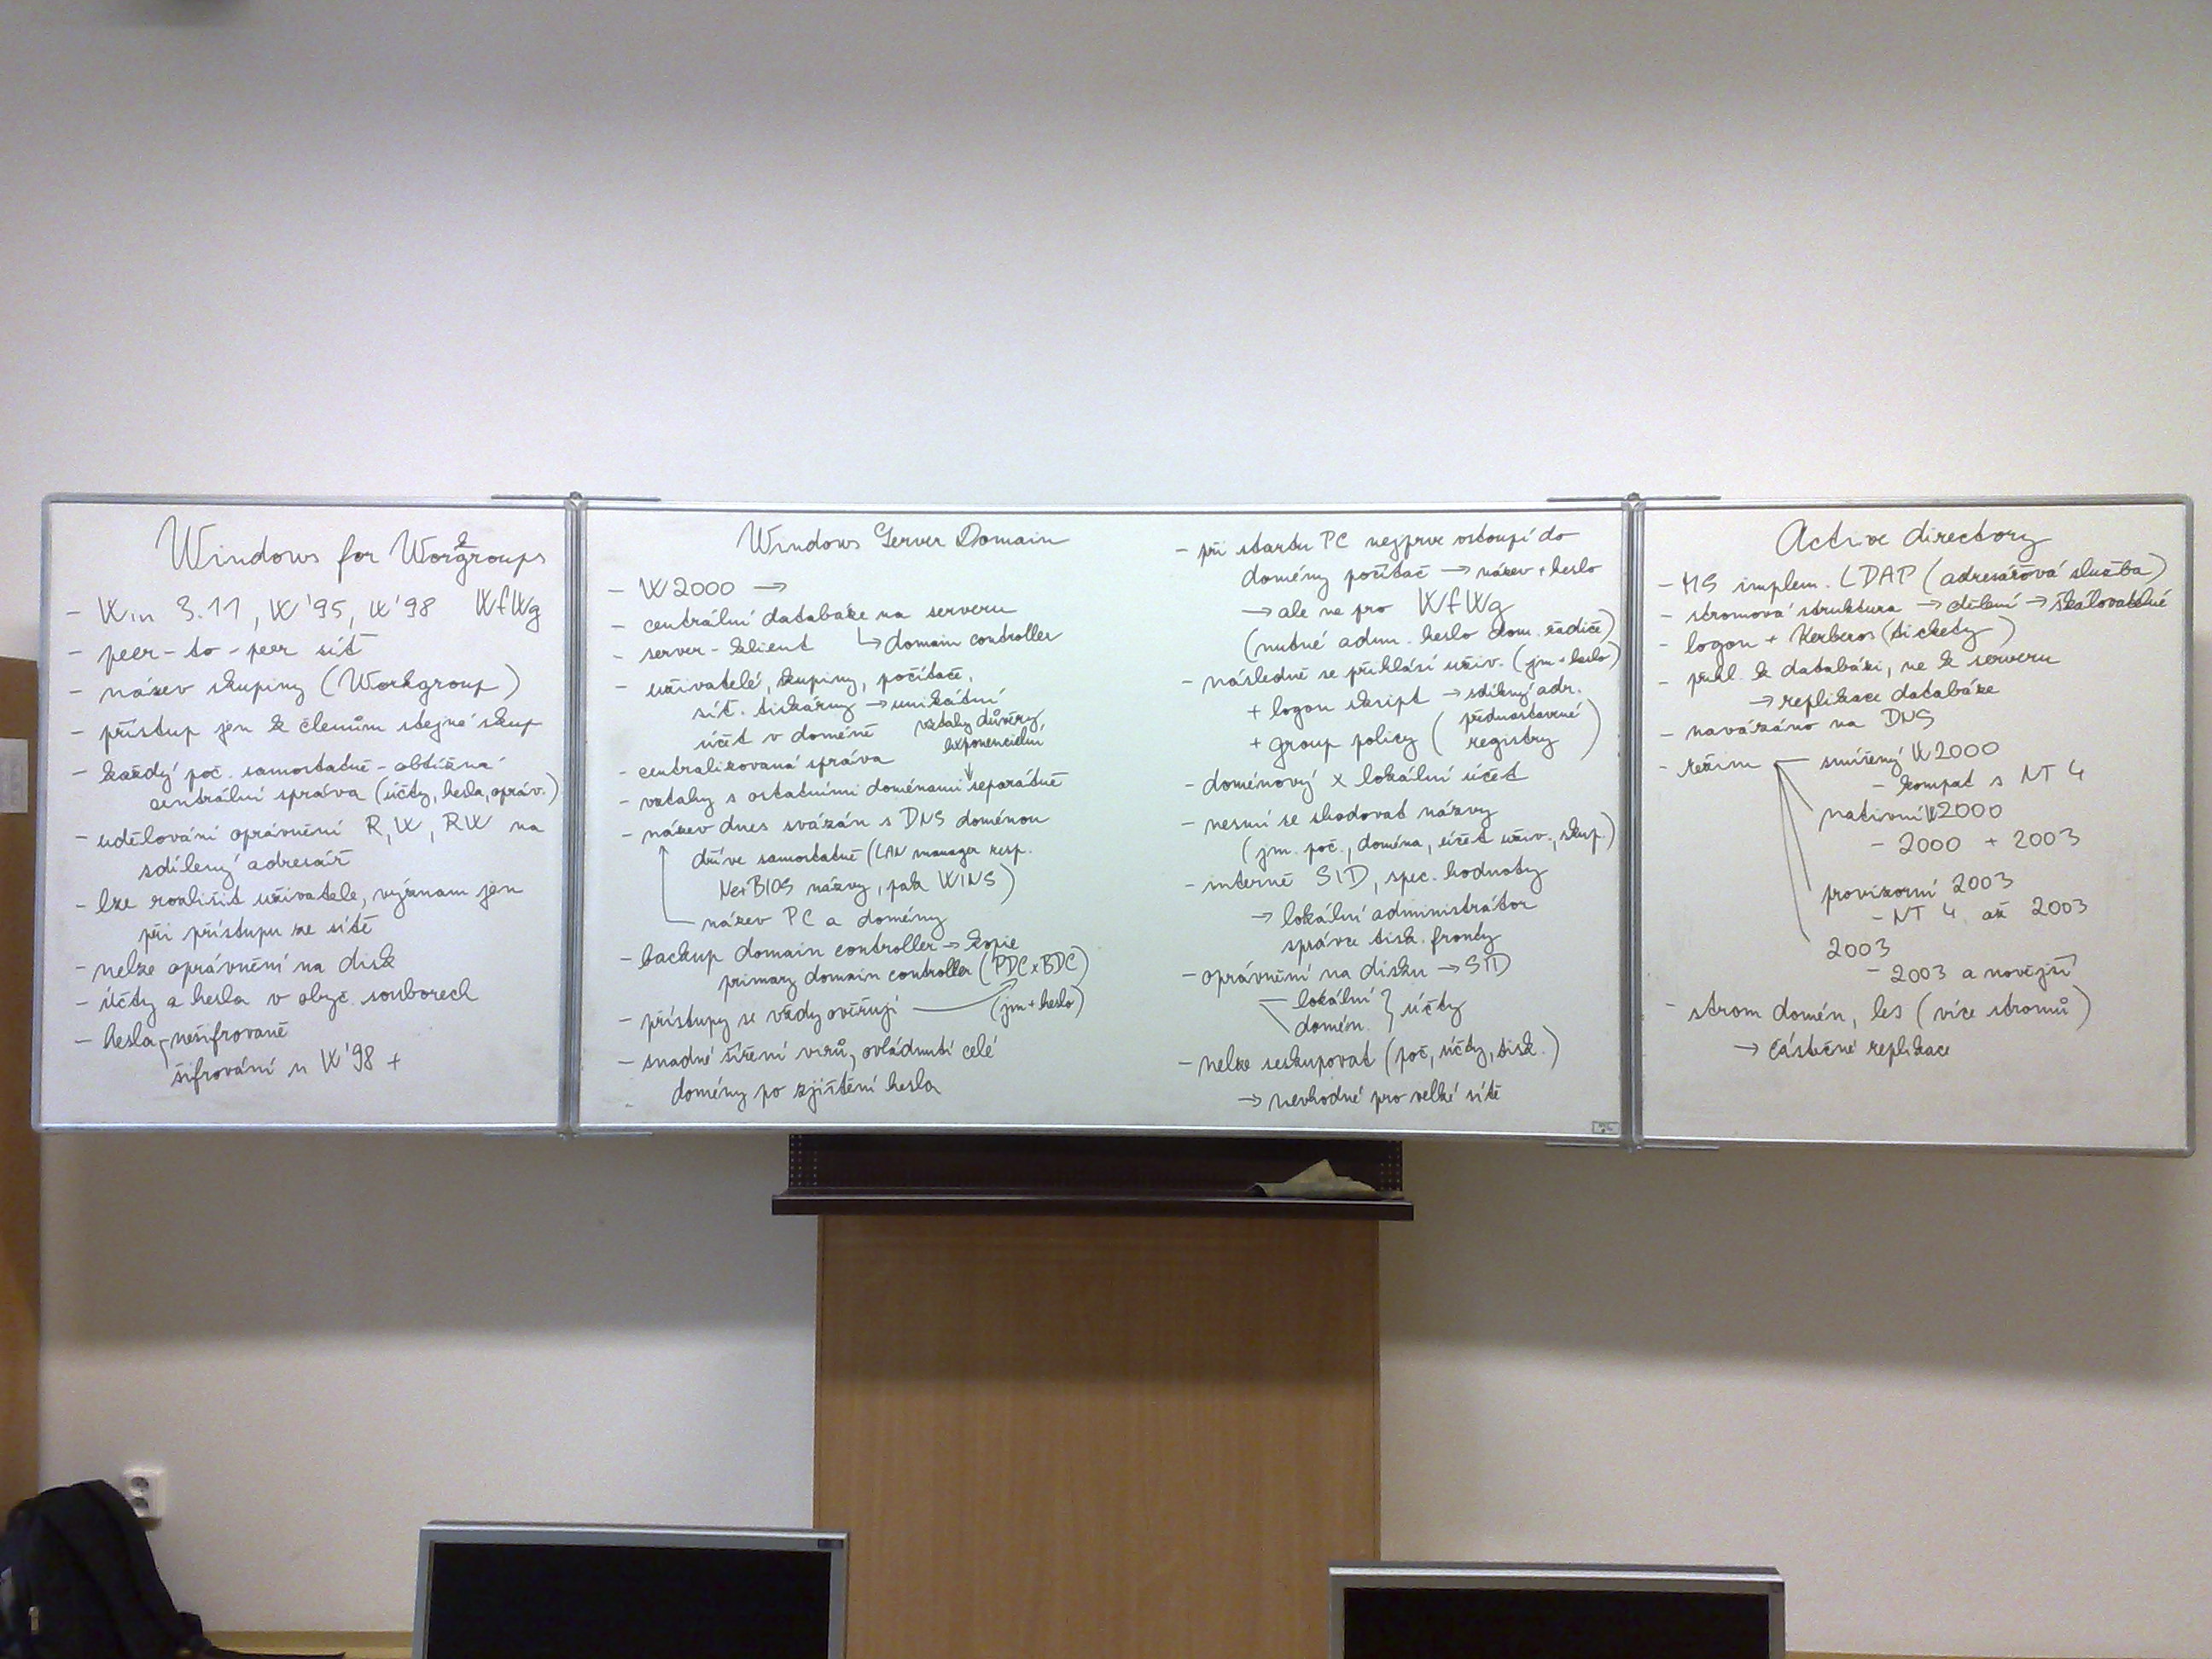 Windows for Workgroups
- Win 3.11, W'95, W'98 WfWg
- peer-to-peer síť
- název skupiny (Workgroup)
- přístup jen k členům stejné skup
- každý poč. samostatně - obtížná
centrální správa (účty, hesla, opráv.)
- udělování oprávnění R, W, RW na
sdílený adresář
- lze rozlišit uživatele, význam jen
při přístupu ze sítě
- nelze oprávnění na disk
- účty a hesla v obyč. souborech
- hesla nešifrovaně
šifrování u W'98 +
Windows Server Domain
- W2000 →
- centrální databáze na serveru
- server-klient ↳ domain controller
- uživatelé, skupiny, počítače,
síť. tiskárny → unikátní
účet v doméně
vztahy důvěry,
exponenciální
- centralizovaná správa
- vztahy s ostatními doménami separátně
- název dnes svázán s DNS doménou
dříve samostatně (LAN manager resp.
NetBIOS názvy, pak WINS)
název PC a domény
- backup domain controller → kopie
primary domain controller (PDC x BDC)
- přístupy se vždy ověřují → (jm + heslo)
- snadné šíření virů, ovládnutí celé
domény po zjištění hesla
- při startu PC nejprve vstoupí do
domény počítač → název + heslo
→ ale ne pro WfWg
(nutné adm. heslo dom. řadiče)
- následně se přihlásí uživ. (jm + heslo)
+ logon skript → sdílený adr.
+ group policy (přednastavené
registry)
- doménový x lokální účet
- nesmí se shodovat názvy
(jm. poč., doména, účet uživ., skup.)
- interně SID, spec. hodnoty
→ lokální administrátor
správce tisk. fronty
- oprávnění na disku → SID
lokální } účty
domén.
- nelze seskupovat (poč, účty, tisk.)
→ nevhodné pro velké sítě
Active directory
- MS implem. LDAP (adresářová služba)
- stromová struktura → dělení → škálovatelné
- logon + Kerberos (tickety)
- přihl. k databázi, ne k serveru
→ replikace databáze
- navázáno na DNS
- režim smíšený W2000
- kompat s NT 4
nativní W2000
- 2000 + 2003
provizorní 2003
- NT 4 až 2003
2003
- 2003 a novější
- strom domén, les (více stromů)
→ částečné replikace